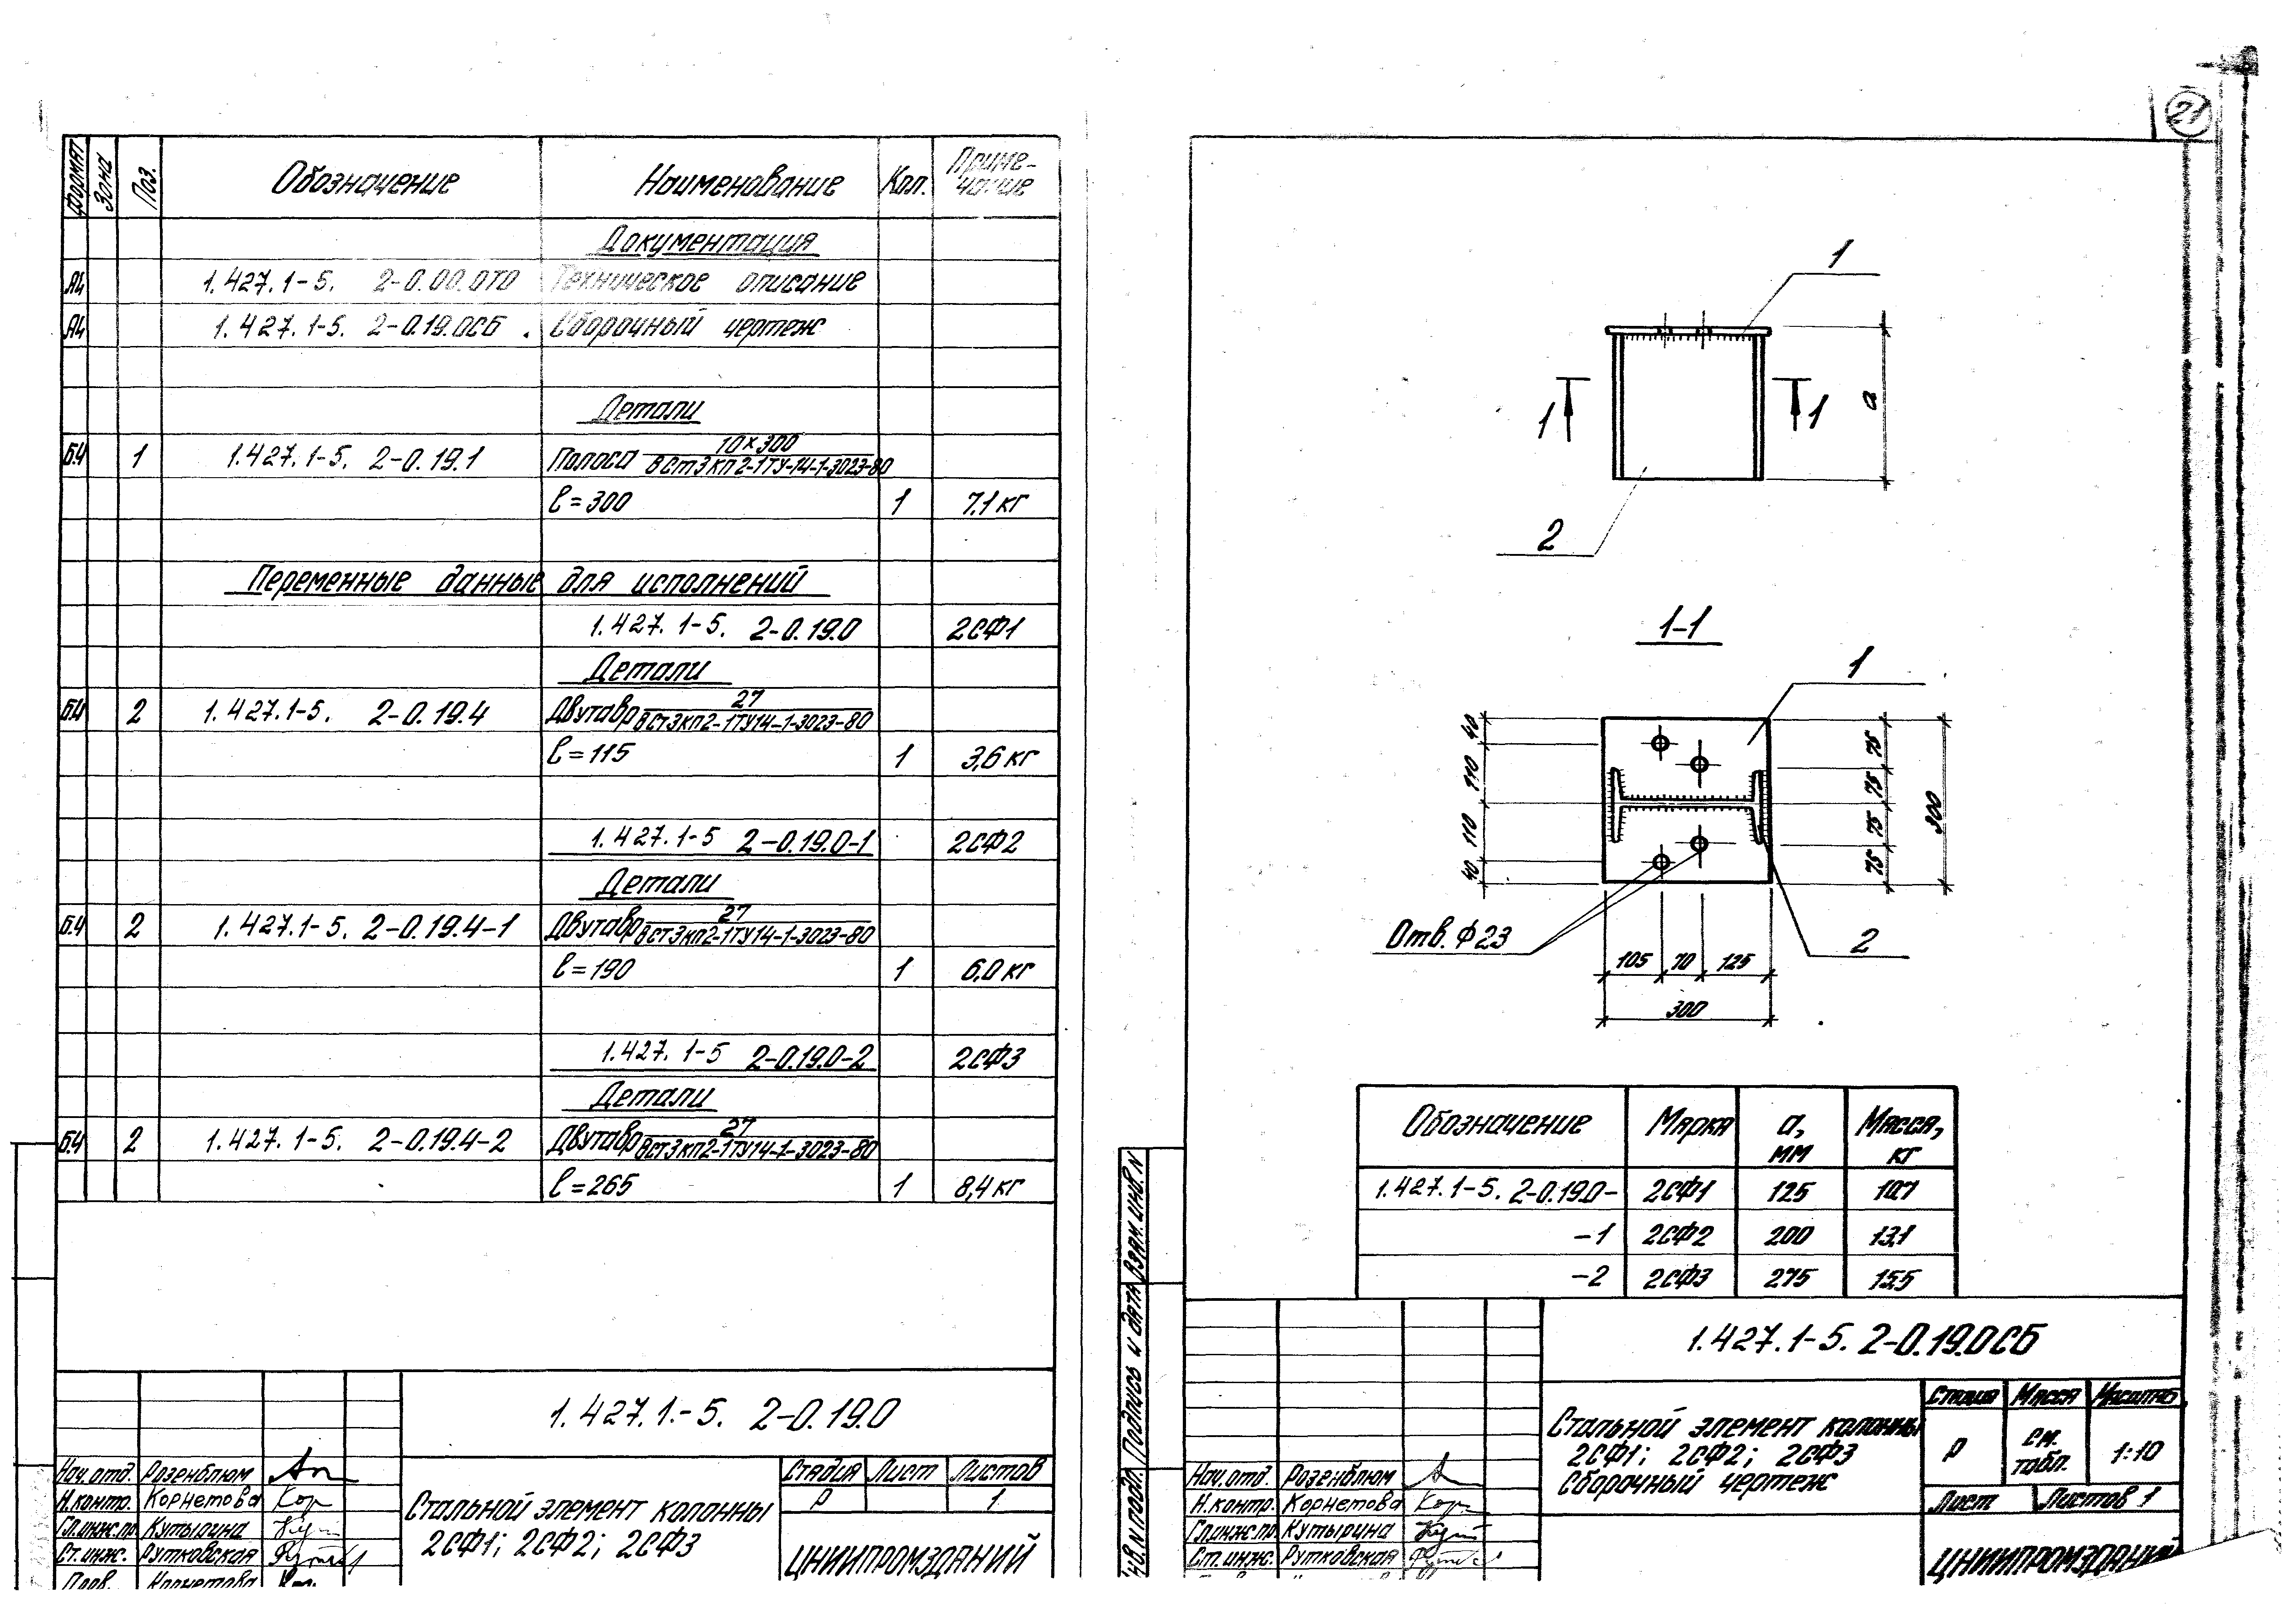 Формат Зона Поз. Обозначение Наименование Кол. Приме-
чание
Документация
А4 1.427.1-5. 2-0.00.0ТО Техническое описание
А4 1.427.1-5. 2-0.19.0СБ Сборочный чертеж
Детали
Б.Ч 1 1.427.1-5. 2-0.19.1 Полоса 10×300
ВСт3кп2-1ТУ-14-1-3023-80
ℓ=300 1 7.1 кг
Переменные данные для исполнений
1.427.1-5. 2-0.19.0 2СФ1
Детали
Б.Ч 2 1.427.1-5. 2-0.19.4 Двутавр 27
ВСт3кп2-1ТУ14-1-3023-80
ℓ=115 1 3,6 кг
1.427.1-5 2-0.19.0-1 2СФ2
Детали
Б.Ч 2 1.427.1-5. 2-0.19.4-1 Двутавр 27
ВСт3кп2-1ТУ14-1-3023-80
ℓ=190 1 6,0 кг
1.427.1-5 2-0.19.0-2 2СФ3
Детали
Б.Ч 2 1.427.1-5. 2-0.19.4-2 Двутавр 27
ВСт3кп2-1ТУ14-1-3023-80
ℓ=265 1 8,4 кг
1.427.1-5. 2-0.19.0
Нач.отд. Розенблюм
Н.контр. Корнетова
Гл.инж.пр. Кутырина
Ст.инж. Рутковская
Пров. Корнетова
Стальной элемент колонны
2СФ1; 2СФ2; 2СФ3
Стадия Лист Листов
Р 1
ЦНИИПРОМЗДАНИЙ
21
1
1 1
а
2
1-1
1
40 110 110 40
75 75 75 75
300
Отв. Ф23
2
105 70 125
300
Обозначение Марка а,
мм Масса,
кг
1.427.1-5. 2-0.19.0- 2СФ1 125 10,7
-1 2СФ2 200 13,1
-2 2СФ3 275 15,5
Взам.инв.N
Подпись и дата
Инв.N подл.
1.427.1-5. 2-0.19.0СБ
Нач.отд. Розенблюм
Н.контр. Корнетова
Гл.инж.пр. Кутырина
Ст.инж. Рутковская
Стальной элемент колонны
2СФ1; 2СФ2; 2СФ3
Сборочный чертеж
Стадия Масса Масштаб
Р см.
табл. 1:10
Лист Листов 1
ЦНИИПРОМЗДАНИЙ